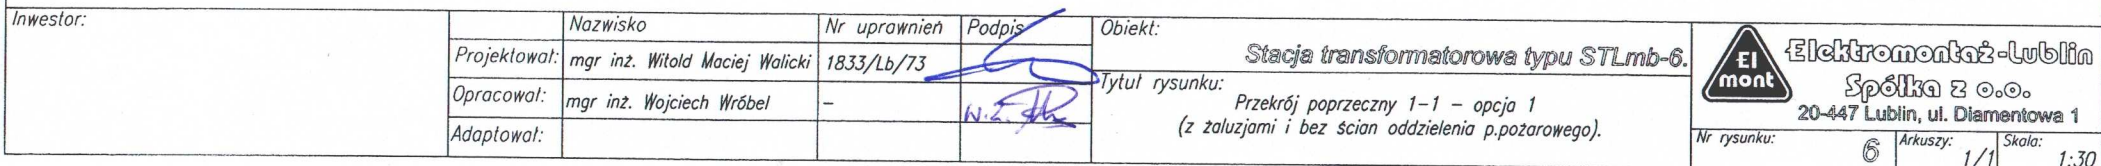 Inwestor:
Nazwisko
Nr uprawnień
Podpis
Projektował:
mgr inż. Witold Maciej Walicki
1833/Lb/73
Opracował:
mgr inż. Wojciech Wróbel
–
Adaptował:
Obiekt:
Stacja transformatorowa typu STLmb-6.
Tytuł rysunku:
Przekrój poprzeczny 1-1 – opcja 1
(z żaluzjami i bez ścian oddzielenia p.pożarowego).
El
mont
Elektromontaż-Lublin
Spółka z o.o.
20-447 Lublin, ul. Diamentowa 1
Nr rysunku:
6
Arkuszy:
1/1
Skala:
1:30